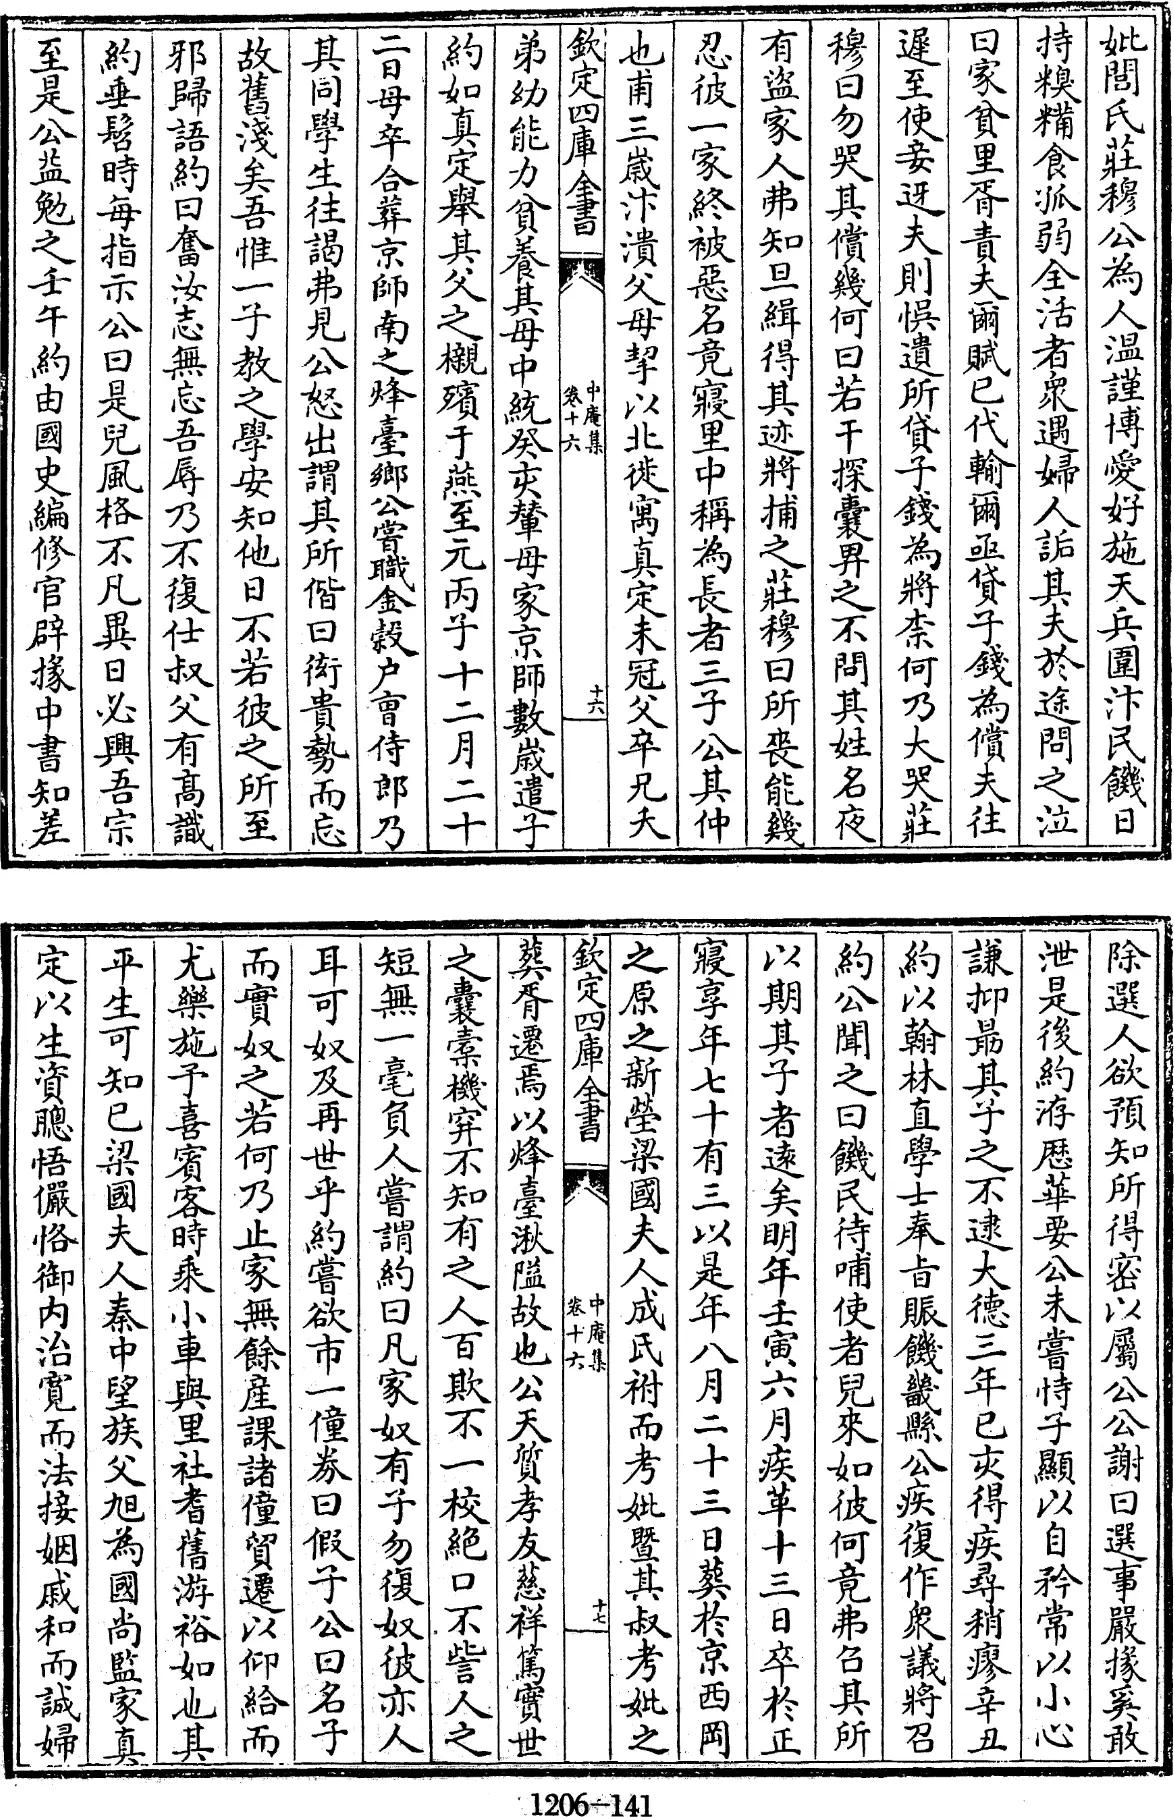 妣閻氏莊穆公為人温謹博愛好施天兵圍汴民饑日
持糗糒食孤弱全活者衆遇婦人詬其夫於途問之泣
曰家貧里胥責夫爾賦已代輸爾亟貸子錢為償夫往
遲至使妾迓夫則悞遺所貸子錢為將柰何乃大哭莊
穆曰勿哭其償幾何曰若干探囊畀之不問其姓名夜
有盜家人弗知旦緝得其迹將捕之莊穆曰所喪能幾
忍彼一家終被惡名竟寢里中稱為長者三子公其仲
也甫三歲汴潰父母挈以北徙寓真定未冠父卒兄夭
欽定四庫全書
中庵集
卷十六
十六
弟幼能力貧養其母中統癸亥輦母家京師數歲遣子
約如真定舉其父之櫬殯于燕至元丙子十二月二十
二日母卒合葬京師南之烽臺鄉公嘗職金穀户曹侍郎乃
其同學生往謁弗見公怒出謂其所偕曰衒貴勢而忘
故舊淺矣吾惟一子教之學安知他日不若彼之所至
邪歸語約曰奮汝志無忘吾辱乃不復仕叔父有髙識
約垂髫時每指示公曰是兒風格不凡異日必興吾宗
至是公益勉之壬午約由國史編修官辟掾中書知差
除選人欲預知所得密以屬公公謝曰選事嚴掾奚敢
泄是後約洊歴華要公未嘗恃子顯以自矜常以小心
謙抑最其子之不逮大德三年已亥得疾尋稍瘳辛丑
約以翰林直學士奉旨賑饑畿縣公疾復作衆議將召
約公聞之曰饑民待哺使者兒來如彼何竟弗召其所
以期其子者遠矣明年壬寅六月疾革十三日卒於正
寢享年七十有三以是年八月二十三日葬於京西岡
之原之新塋梁國夫人成氏祔而考妣暨其叔考妣之
欽定四庫全書
中庵集
卷十六
十七
葬胥遷焉以烽臺湫隘故也公天質孝友慈祥篤實世
之囊橐機穽不知有之人百欺不一校絶口不訾人之
短無一毫負人嘗謂約曰凡家奴有子勿復奴彼亦人
耳可奴及再世乎約嘗欲市一僮券曰假子公曰名子
而實奴之若何乃止家無餘産課諸僮貿遷以仰給而
尤樂施予喜賓客時乘小車與里社耆舊游裕如也其
平生可知已梁國夫人秦中望族父旭為國尚監家真
定以生資聰悟儼恪御内治寛而法接姻戚和而誠婦
1206-141